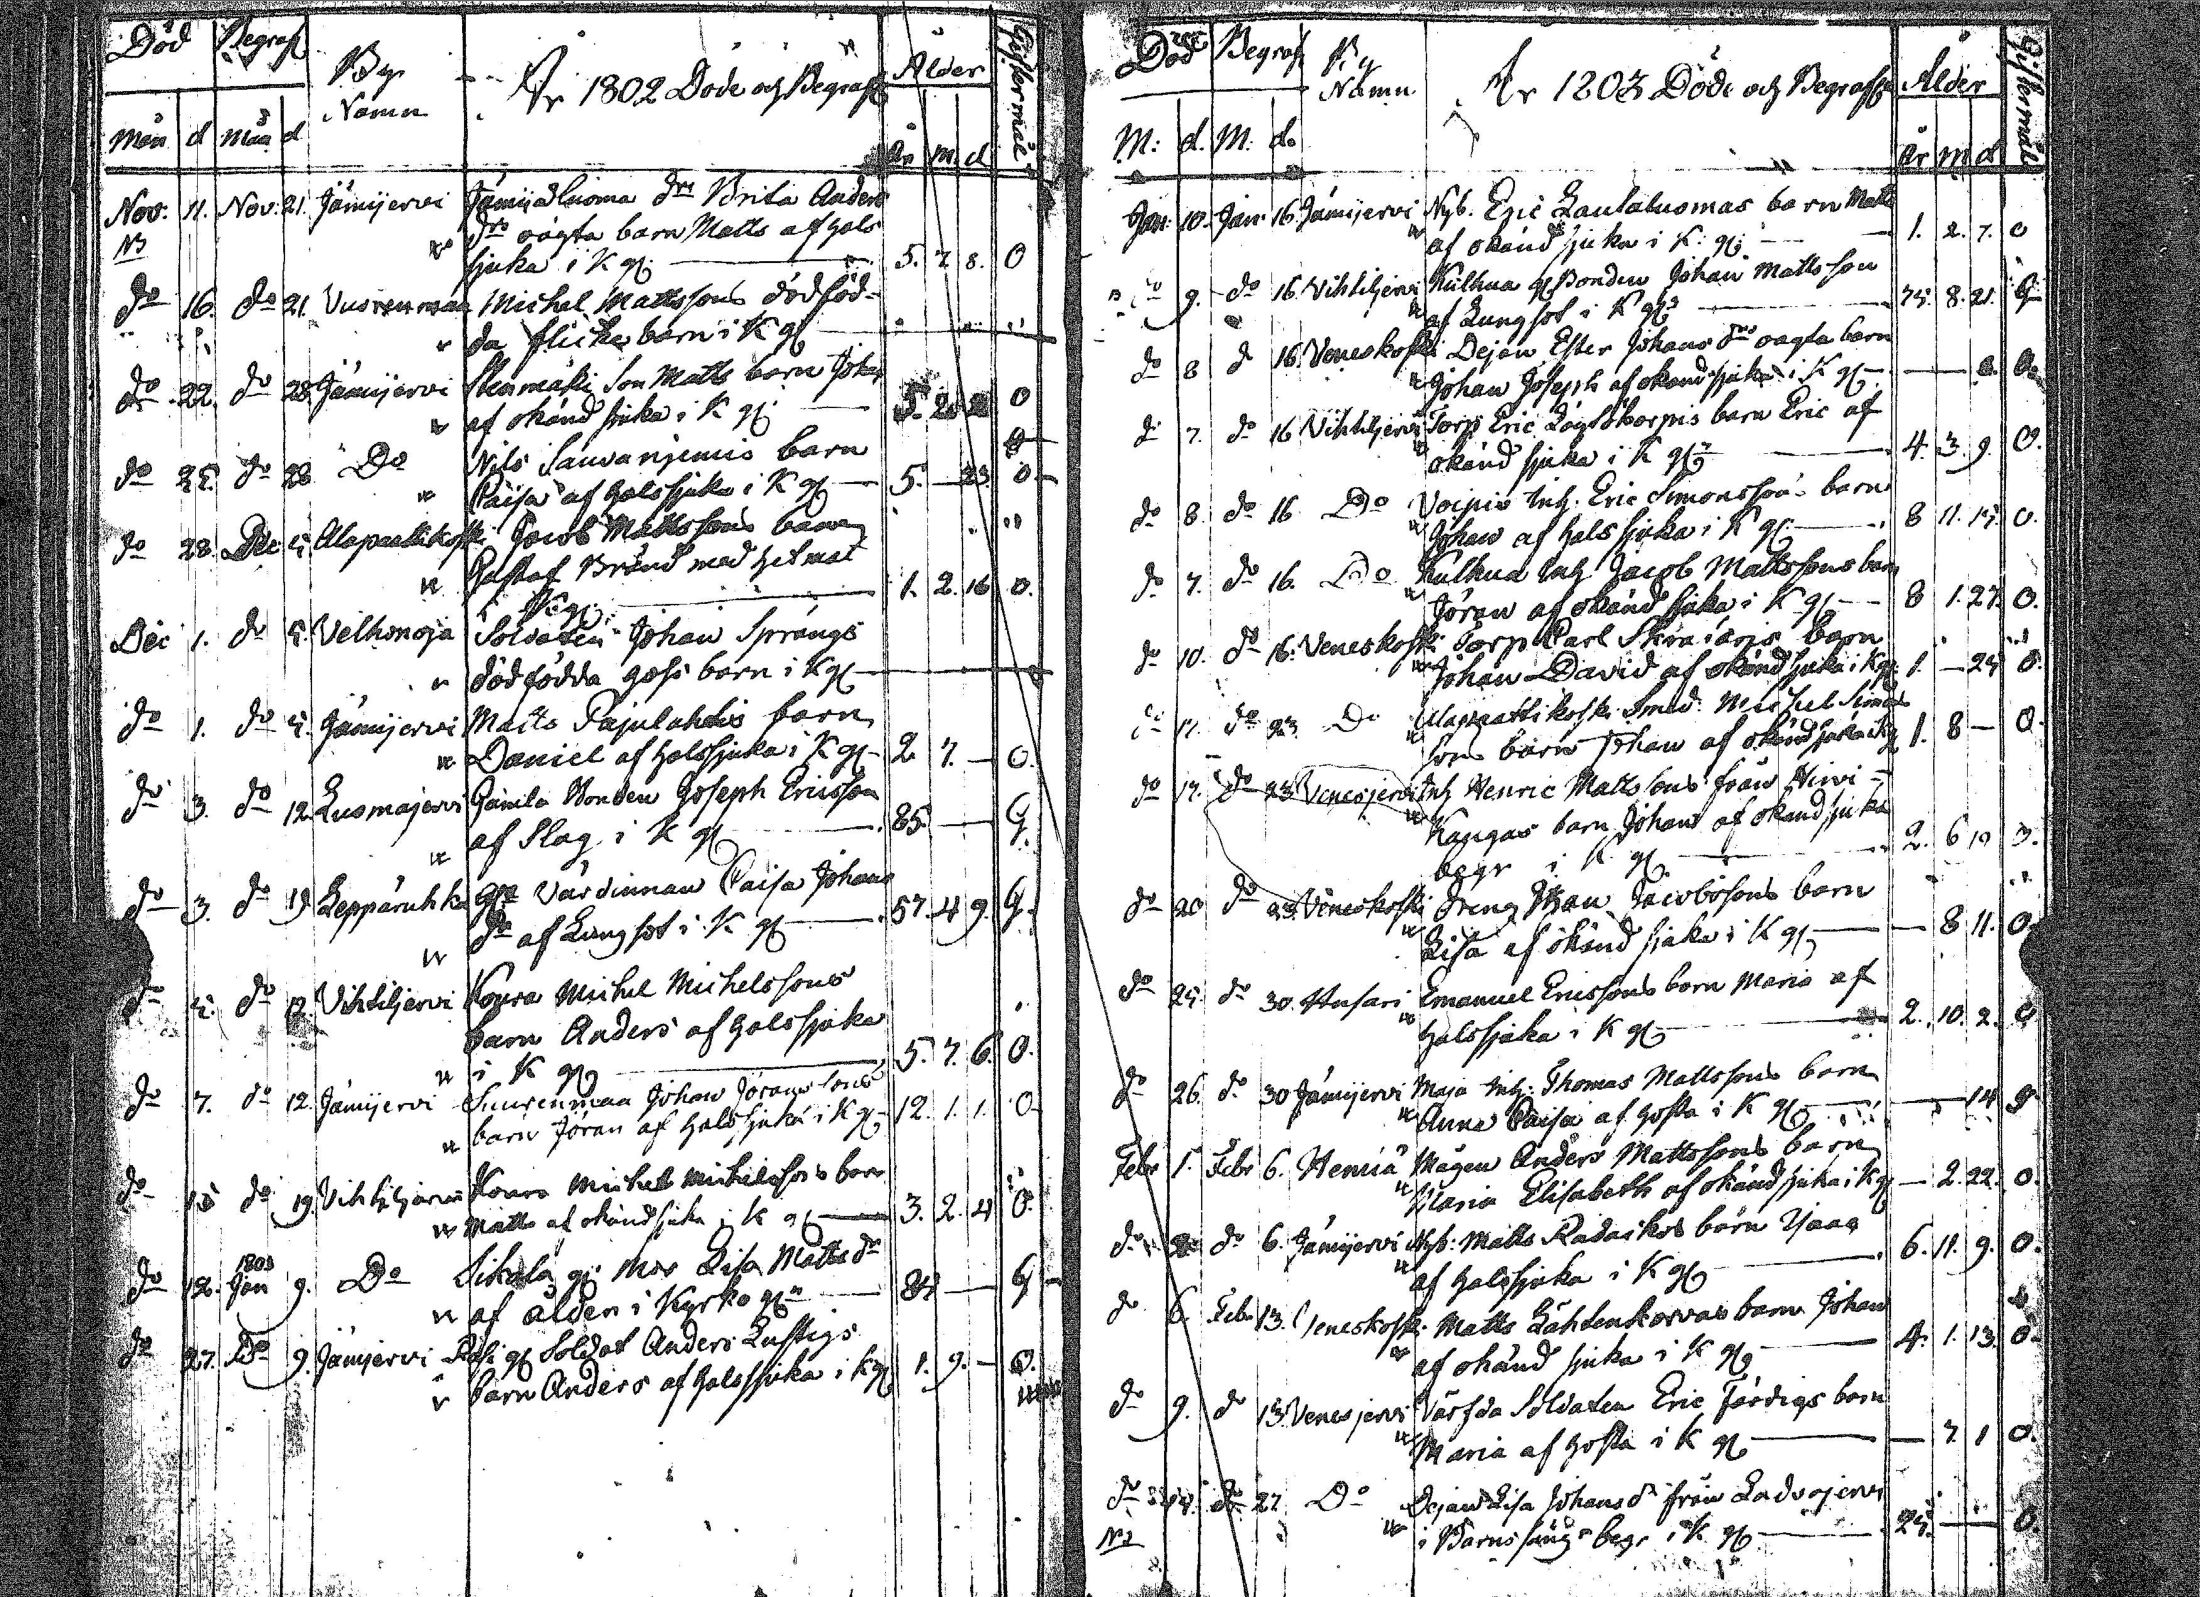 Död Begraf By År 1802 Döde och Begrafne Ålder Giftermål
Namn
Mån d Mån d År M. d
Nov. 11. Nov: 21. Jämijervi Jämijä Luoma drs Brita Anders
NB drs oägta barn Matts af hals
sjuka i K gg. 5. 7. 8. O
do 16. do 21. Michel Mattssons dödföd-
da flicke barn i K gg
do 22. do 28 Jämijervi Son Matts barn Johan
af okänd sjuka i K gg. O
do 25. do 28 Do Nils Sauvanjemis barn
Caisa af halssjuka i K gg 5. — 23 O
do 28. Dec 5. Alapaattikoski Jacob Mattssons barn
Gustaf Bränd med het mat
i K gg. 1. 2. 16 O.
Dec 1. do 5. Velhonoja Soldaten Johan Sprängs
dödfödda gosse barn i K gg
do 1. do 5. Jämijervi Matts Pajulahtis barn
Daniel af halssjuka i K gg 2 7. — O.
do 3. do 12. Luomajervi Gamla Bonden Joseph Ericsson
af Slag i K gg 85. — G.
do 3. do 19 Lepparuhka Gla Värdinnan Caisa Johans
dr af Lungsot i K gg 57. 4 9. G.
do 5. do 12. Vihtiljervi Koura Michel Michelssons
barn Anders af halssjuka
i K gg 5. 7. 6. O.
do 7. do 12. Jämijervi Suurenmaa Johan Jöranssons
barn Jöran af halssjuka i K gg 12. 1. 1. O
do 15 do 19. Vihtiljervi Koura Michel Michelssons barn
Matts af okänd sjuka i K gg 3. 2. 4 O.
1803
do Jan 9. Do Sikala gl. Mor Lisa Matts dr
af ålder i Kyrko gg 84 — G
do 27. Do 9. Jämijervi gl Soldat Anders Lustigs
barn Anders af halssjuka i K gg 1. 9. — O.
Död Begraf By År 1803 Döde och Begrafne Ålder Giftermål
Namn
M: d. M: d. År M d
Jan: 10. Jan 16. Jämijervi Nyb. Eric Lautaluomas barn Matts
af okänd sjuka i K: gg: 1. 2. 7. O
do 9. do 16. Vihtiljervi Kulhua gl Bonden Johan Mattsson
af Lungsot i K gg 75. 8. 21. G
do 8 d 16. Veneskoski Dejan Ester Johans drs oagta barn
Johan Joseph af okänd sjuka i K gg O.
do 7. do 16 Vihtiljervi Torp Eric barn Eric af
okänd sjuka i K gg 4. 3. 9. O.
do 8. do 16 Do Voipio Inh. Eric Simonssons barn
Johan af halssjuka i K gg. 8 11. 15. O.
do 7. do 16. Do Kulhua Inh Jacob Mattssons barn
Jöran af okänd sjuka i K gg 8 1. 27. O.
do 10. do 16. Veneskoski Torp Carl barn
Johan David af okänd sjuka i K gg. 1. — 25 O.
do 17. do 23. Do Alapaattikoski Smed. Michel Simons
sons barn Johan af okänd sjuka i K gg 1. 8 — O.
do 17. do 23 Venesjervi Inh Henric Mattssons från Hirvi-
Kangas barn Johan af okänd sjuka
begr i K gg 2. 6 10
do 20 do 23. Veneskoski Dreng Johan Jacobssons barn
Lisa af okänd sjuka i K gg — 8 11. O.
do 25. do 30. Husari Emanuel Ericssons barn Maria af
halssjuka i K gg 2. 10. 2. O
do 26. do 30 Jämijervi Maja Inh: Thomas Mattssons barn
Anna Caisa af hosta i K gg — 14 O
Febr 1. Febr 6. Hemiä Mågen Anders Mattssons barn
Maria Elisabeth af okänd sjuka i K gg — 2. 22. O.
do do 6. Jämijervi Nyb: Matts Radaikos barn
af halssjuka i K gg 6. 11. 9. O.
do 6. Febr 13. Veneskoski Matts Lähteenkorvas barn Johan
af okänd sjuka i K gg 4. 1. 13. O.
do 9. do 13. Venesjervi Värfda Soldaten Eric Färdigs barn
Maria af hosta i K gg — 7 1 O.
do do 27. Do Dejan Lisa Johans dr från Ladvajervi
NB i Barnsäng begr i K gg 25. — O.